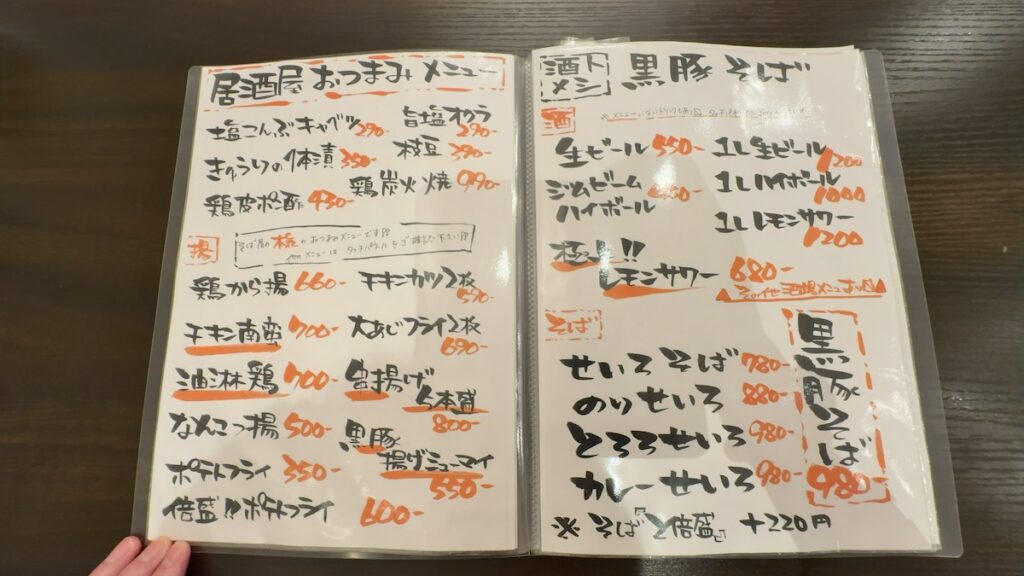 居酒屋おつまみメニュー
塩こんぶキャベツ 290-
旨塩オクラ 290-
きゅうりの1本漬 350-
枝豆 390-
鶏炭火焼 990-
鶏皮ポン酢 430-
揚
鶏から揚 660-
チキンカツ2枚 590-
チキン南蛮 700-
大あじフライ2枚 690-
油淋鶏 700-
串揚げ 5本盛 800-
なんこつ揚 500-
黒豚 揚げシューマイ 550-
ポテトフライ 350-
倍盛!!ポテトフライ 600-
酒ト
メシ
黒豚そば
酒
生ビール 550-
1L生ビール 1200
ジムビーム
ハイボール
1Lハイボール 1000
1Lレモンサワー 1200
極上!!
レモンサワー 680-
そば
せいろそば 780-
のりせいろ 880-
とろろせいろ 980-
カレーせいろ 980-
黒豚そば 980-
※そば『2倍盛』 +220円